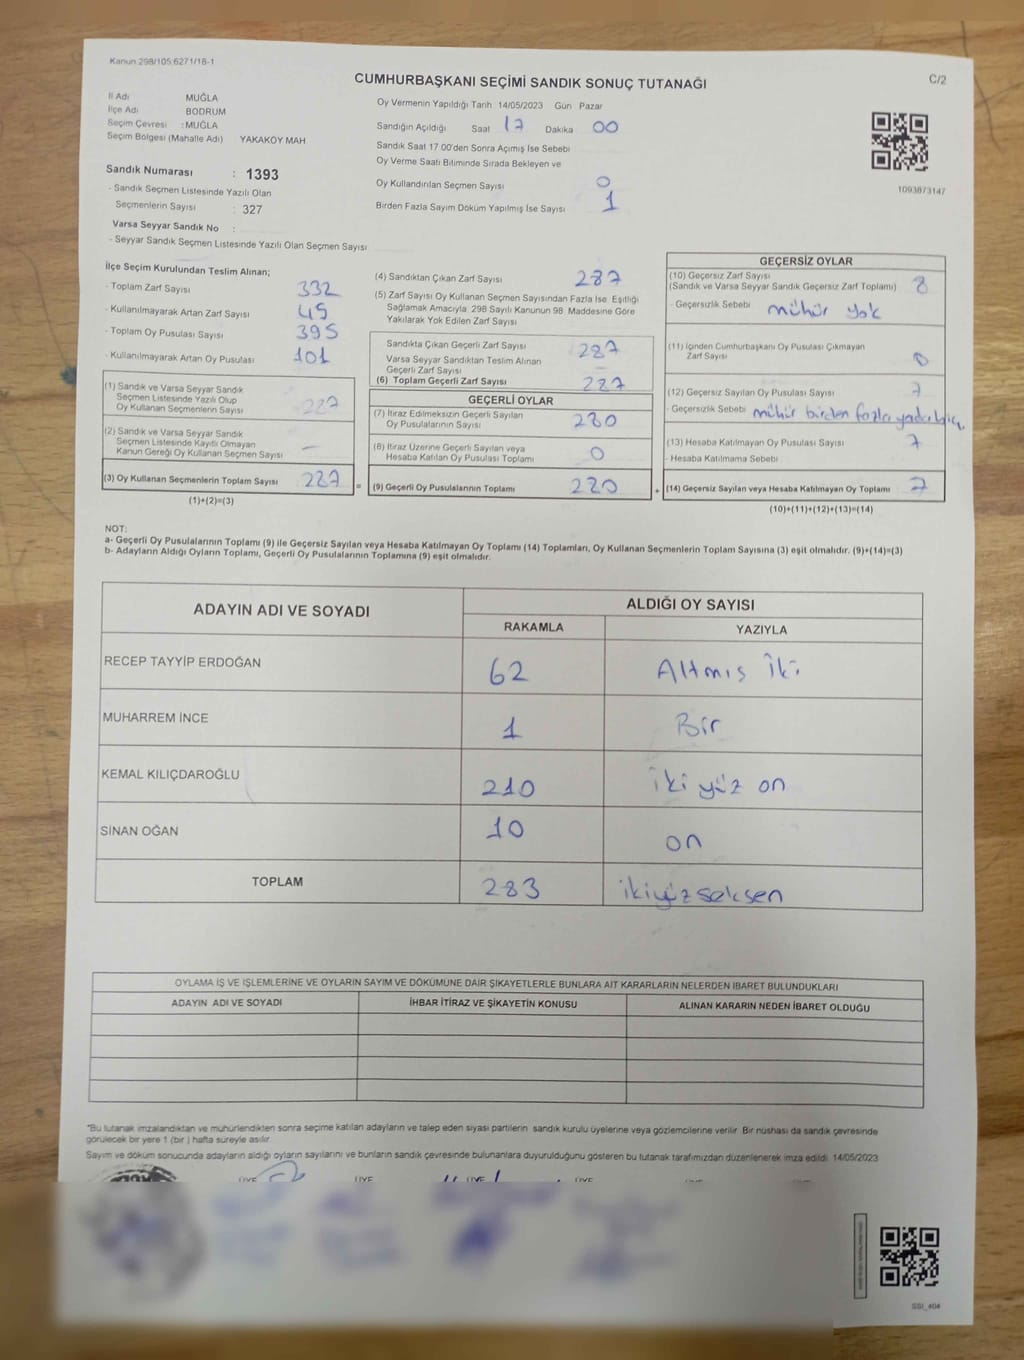 Kanun 298/105:6271/18-1
CUMHURBAŞKANI SEÇİMİ SANDIK SONUÇ TUTANAĞI
C/2
İl Adı MUĞLA
İlçe Adı BODRUM
Seçim Çevresi :MUĞLA
Seçim Bölgesi (Mahalle Adı) YAKAKÖY MAH
Sandık Numarası : 1393
- Sandık Seçmen Listesinde Yazılı Olan
Seçmenlerin Sayısı : 327
Varsa Seyyar Sandık No :
- Seyyar Sandık Seçmen Listesinde Yazılı Olan Seçmen Sayısı
Oy Vermenin Yapıldığı Tarih 14/05/2023 Gün Pazar
Sandığın Açıldığı Saat 17 Dakika 00
Sandık Saat 17:00'den Sonra Açımış İse Sebebi
Oy Verme Saati Bitiminde Sırada Bekleyen ve
Oy Kullandırılan Seçmen Sayısı 0
Birden Fazla Sayım Döküm Yapılmış İse Sayısı 1
1093873147
İlçe Seçim Kurulundan Teslim Alınan;
- Toplam Zarf Sayısı 332
- Kullanılmayarak Artan Zarf Sayısı 45
- Toplam Oy Pusulası Sayısı 395
- Kullanılmayarak Artan Oy Pusulası 101
(1) Sandık ve Varsa Seyyar Sandık
Seçmen Listesinde Yazılı Olup
Oy Kullanan Seçmenlerin Sayısı 287
(2) Sandık ve Varsa Seyyar Sandık
Seçmen Listesinde Kayıtlı Olmayan
Kanun Gereği Oy Kullanan Seçmen Sayısı –
(3) Oy Kullanan Seçmenlerin Toplam Sayısı 287
(1)+(2)=(3)
(4) Sandıktan Çıkan Zarf Sayısı 287
(5) Zarf Sayısı Oy Kullanan Seçmen Sayısından Fazla İse Eşitliği
Sağlamak Amacıyla 298 Sayılı Kanunun 98. Maddesine Göre
Yakılarak Yok Edilen Zarf Sayısı
Sandıkta Çıkan Geçerli Zarf Sayısı 287
Varsa Seyyar Sandıktan Teslim Alınan
Geçerli Zarf Sayısı
(6) Toplam Geçerli Zarf Sayısı 287
GEÇERLİ OYLAR
(7) İtiraz Edilmeksizin Geçerli Sayılan
Oy Pusulalarının Sayısı 280
(8) İtiraz Üzerine Geçerli Sayılan veya
Hesaba Katılan Oy Pusulası Toplamı 0
= (9) Geçerli Oy Pusulalarının Toplamı 280
GEÇERSİZ OYLAR
(10) Geçersiz Zarf Sayısı
(Sandık ve Varsa Seyyar Sandık Geçersiz Zarf Toplamı)
- Geçersizlik Sebebi mühür yok
(11) İçinden Cumhurbaşkanı Oy Pusulası Çıkmayan
Zarf Sayısı 0
(12) Geçersiz Sayılan Oy Pusulası Sayısı 7
- Geçersizlik Sebebi mühür birden fazla yada hiç
(13) Hesaba Katılmayan Oy Pusulası Sayısı 7
- Hesaba Katılmama Sebebi
+ (14) Geçersiz Sayılan veya Hesaba Katılmayan Oy Toplamı 7
(10)+(11)+(12)+(13)=(14)
NOT:
a- Geçerli Oy Pusulalarının Toplamı (9) ile Geçersiz Sayılan veya Hesaba Katılmayan Oy Toplamı (14) Toplamları, Oy Kullanan Seçmenlerin Toplam Sayısına (3) eşit olmalıdır. (9)+(14)=(3)
b- Adayların Aldığı Oyların Toplamı, Geçerli Oy Pusulalarının Toplamına (9) eşit olmalıdır.
ADAYIN ADI VE SOYADI
ALDIĞI OY SAYISI
RAKAMLA YAZIYLA
RECEP TAYYİP ERDOĞAN 62 Altmış İki
MUHARREM İNCE 1 Bir
KEMAL KILIÇDAROĞLU 210 iki yüz on
SİNAN OĞAN 10 on
TOPLAM 283 ikiyüzseksen
OYLAMA İŞ VE İŞLEMLERİNE VE OYLARIN SAYIM VE DÖKÜMÜNE DAİR ŞİKAYETLERLE BUNLARA AİT KARARLARIN NELERDEN İBARET BULUNDUKLARI
ADAYIN ADI VE SOYADI İHBAR İTİRAZ VE ŞİKAYETİN KONUSU ALINAN KARARIN NEDEN İBARET OLDUĞU
*Bu tutanak imzalandıktan ve mühürlendikten sonra seçime katılan adayların ve talep eden siyasi partilerin sandık kurulu üyelerine veya gözlemcilerine verilir. Bir nüshası da sandık çevresinde
görülecek bir yere 1 (bir ) hafta süreyle asılır
Sayım ve döküm sonucunda adayların aldığı oyların sayılarını ve bunların sandık çevresinde bulunanlara duyurulduğunu gösteren bu tutanak tarafımızdan düzenlenerek imza edildi. 14/05/2023
ÜYE ÜYE ÜYE ÜYE
SSI_404